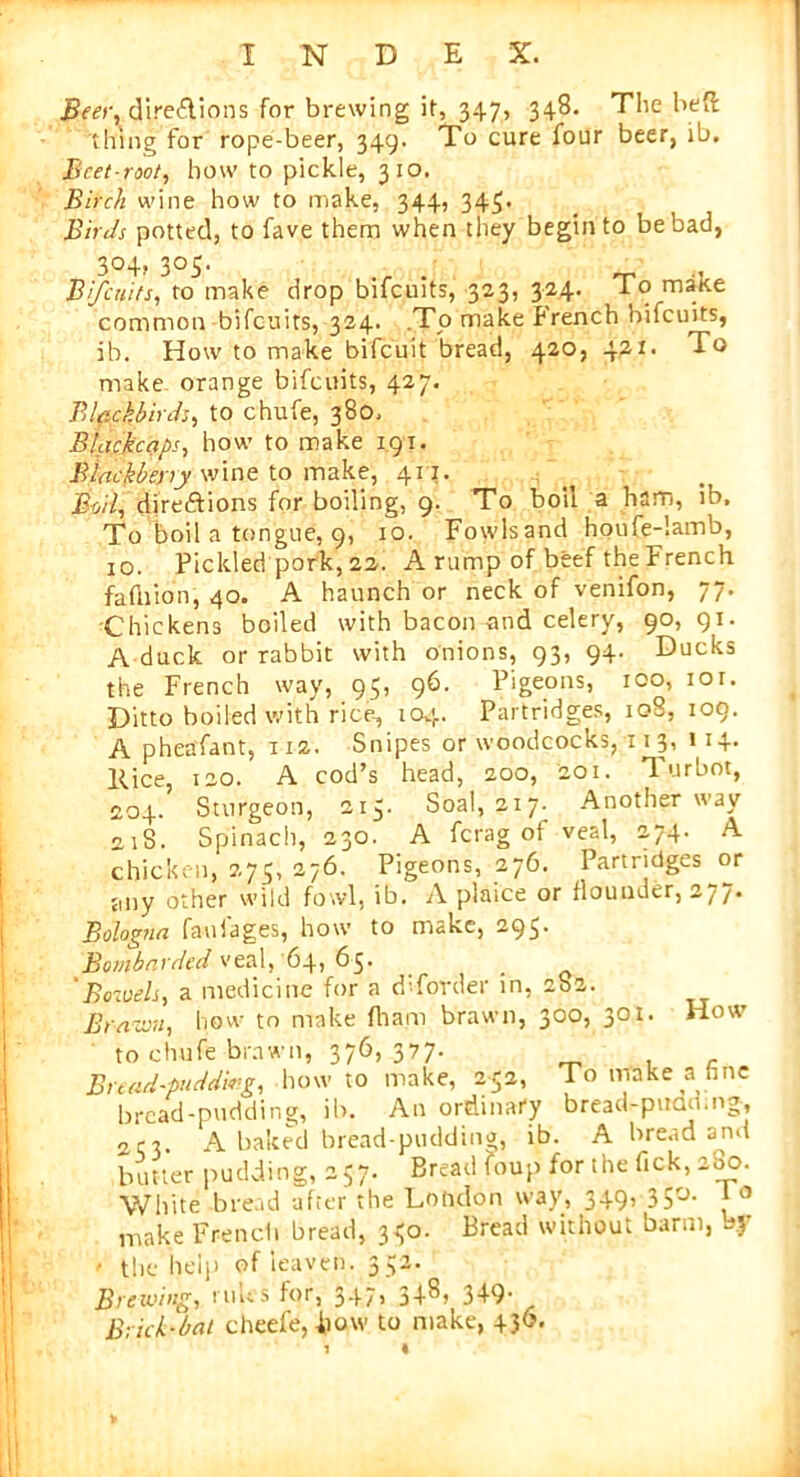 INDEX.
Beer, directions for brewing it, 347, 348. The beſt
thing for rope-beer, 349. To cure ſour beer, ib.
Beet-root, how to pickle, 310.
Birch wine how to make, 344, 345.
Birds potted, to ſave them when they begin to be bad,
304, 305.
Biſcuits, to make drop biſcuits, 323, 324. To make
common biſcuits, 324. To make French biſcuits,
ib. How to make biſcuit bread, 420, 421. To
make orange biſcuits, 427.
Blackbirds, to chuſe, 380.
Blackcaps, how to make 191.
Blackberry wine to make, 411.
Boil, directions for boiling, 9. To boil a ham, ib.
To boil a tongue, 9, 10. Fowls and houſe-lamb,
10. Pickled pork, 22. A rump of beef the French
faſhion, 40. A haunch or neck of veniſon, 77.
Chickens boiled with bacon and celery, 90, 91.
A duck or rabbit with onions, 93, 94. Ducks
the French way, 95, 96. Pigeons, 100, 101.
Ditto boiled with rice, 104. Partridges, 108, 109.
A pheaſant, 112. Snipes or woodcocks, 113, 114.
Rice, 120. A cod's head, 200, 201. Turbot,
204. Sturgeon, 215. Soal, 217. Another way
218. Spinach, 230. A ſcrag of veal, 274. A
chicken, 275, 276. Pigeons, 276. Partridges or
any other wild fowl, ib. A plaice or flounder, 277.
Bologna ſauſages, how to make, 295.
Bombarded veal, 64, 65.
Bowels, a medicine for a diſorder in, 282.
Brawn, how to make ſham brawn, 300, 301. How
to chuſe brawn, 376, 377.
Bread-pudding, how to make, 252, To make a fine
bread-pudding, ib. An ordinary bread-pudding,
253. A baked bread-pudding, ib. A bread and
butter pudding, 257. Bread ſoup for the ſick, 280.
White bread after the London way, 349, 350. To
make French bread, 350. Bread without barm, by
the help of leaven. 352.
Brewing, rules for, 347, 348, 349.
Brick-bat cheeſe, how to make, 436.